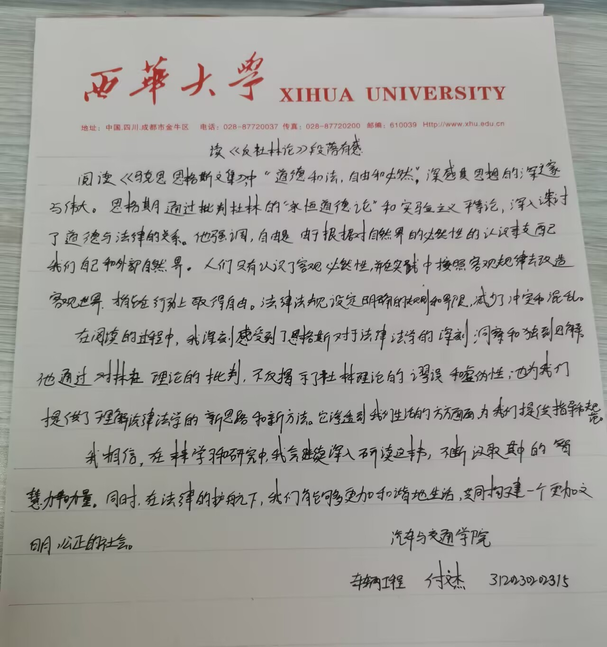 西華大學 XIHUA UNIVERSITY
地址：中国.四川.成都市金牛区 电话：028-87720037 传真：028-87720200 邮编：610039 Http://www.xhu.edu.cn
读《反杜林论》段落有感
阅读《马克思恩格斯文集》中“道德和法，自由和必然”，深感其思想的深邃
与伟大。恩格斯通过批判杜林的“永恒道德论”和实验主义平等论，深入谈讨
了道德与法律的关系。他强调，自由是由于根据对自然界的必然性的认识来支配
我们自己和外部自然界。人们只有认识了客观必然性，并在实践中按照客观规律去改造
客观世界，才能在行动上取得自由。法律法规设定明确的规则和界限，减少了冲突和混乱。
在阅读的过程中，我深刻感受到了恩格斯对于法律法学的深刻洞察和独到见解。
他通过对杜林理论的批判，不仅揭示了杜林理论的谬误和虚伪性，也为我们
提供了理解法律法学的新思路和新方法。它渗透到我们生活的方方面面，为我们提供指导和
我相信，在未来学习和研究中，我会继续深入研读这本书，不断汲取其中的智
慧和力量。同时，在法律的护航下，我们能够更加和谐地生活，共同构建一个更加文
明、公正的社会。
汽车与交通学院
车辆工程 付文杰 312023020 2315